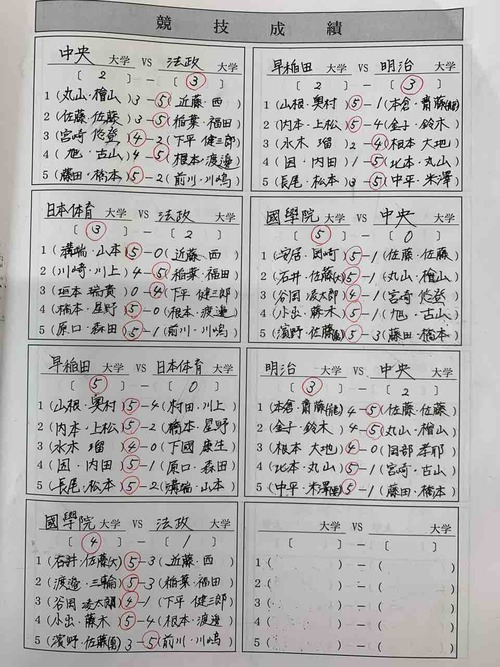 競技成績
中央 大学 VS 法政 大学
〔 2 〕 − 〔 3 〕
1 (丸山・檜山) 3 − 5 (近藤・西)
2 (佐藤・佐藤) 5 − 3 (稲葉・福田)
3 (宮崎 悠登) 4 − 2 (下平 健三郎)
4 (旭・古山) 4 − 5 (根本・渡邉)
5 (藤田・橋本) 5 − 2 (前川・川嶋)
早稲田 大学 VS 明治 大学
〔 2 〕 − 〔 3 〕
1 (山根・奥村) 5 − 1 (本倉・齋藤(健))
2 (内本・上松) 5 − 4 (金子・鈴木)
3 (水木 瑠) 2 − 4 (根本 大地)
4 (因・内田) 1 − 5 (北本・丸山)
5 (長尾・松本) 3 − 5 (中平・米澤)
日本体育 大学 VS 法政 大学
〔 3 〕 − 〔 2 〕
1 (溝端・山本) 5 − 0 (近藤・西)
2 (川崎・川上) 4 − 5 (稲葉・福田)
3 (垣本 瑞貴) 0 − 4 (下平 健三郎)
4 (橋本・星野) 5 − 0 (根本・渡邉)
5 (原口・森田) 5 − 1 (前川・川嶋)
國學院 大学 VS 中央 大学
〔 5 〕 − 〔 0 〕
1 (安居・岡崎) 5 − 1 (佐藤・佐藤)
2 (石井・佐藤(大)) 5 − 1 (丸山・檜山)
3 (谷田 凌太郎) 4 − 1 (宮崎 悠登)
4 (小出・藤木) 5 − 1 (旭・古山)
5 (濱野・佐藤) 5 − 3 (藤田・橋本)
早稲田 大学 VS 日本体育 大学
〔 5 〕 − 〔 0 〕
1 (山根・奥村) 5 − 4 (村田・川上)
2 (内本・上松) 5 − 2 (橋本・星野)
3 (水木 瑠) 4 − 0 (下國 康生)
4 (因・内田) 5 − 1 (原口・森田)
5 (長尾・松本) 5 − 2 (溝端・山本)
明治 大学 VS 中央 大学
〔 3 〕 − 〔 2 〕
1 (本倉・齋藤(健)) 4 − 5 (佐藤・佐藤)
2 (金子・鈴木) 4 − 5 (丸山・檜山)
3 (根本 大地) 4 − 0 (岡部 孝耶)
4 (北本・丸山) 5 − 1 (宮崎・古山)
5 (中平・米澤) 5 − 1 (藤田・橋本)
國學院 大学 VS 法政 大学
〔 4 〕 − 〔 1 〕
1 (石井・佐藤(大)) 5 − 3 (近藤・西)
2 (渡邉・三輪) 5 − 3 (稲葉・福田)
3 (谷田 凌太朗) 4 − 1 (下平 健三郎)
4 (小出・藤木) 5 − 4 (根本・渡邉)
5 (濱野・佐藤) 3 − 5 (前川・川嶋)
大学 VS 大学
〔 〕 − 〔 〕
1 ( − )
2 ( − )
3 ( − )
4 ( − )
5 ( − )